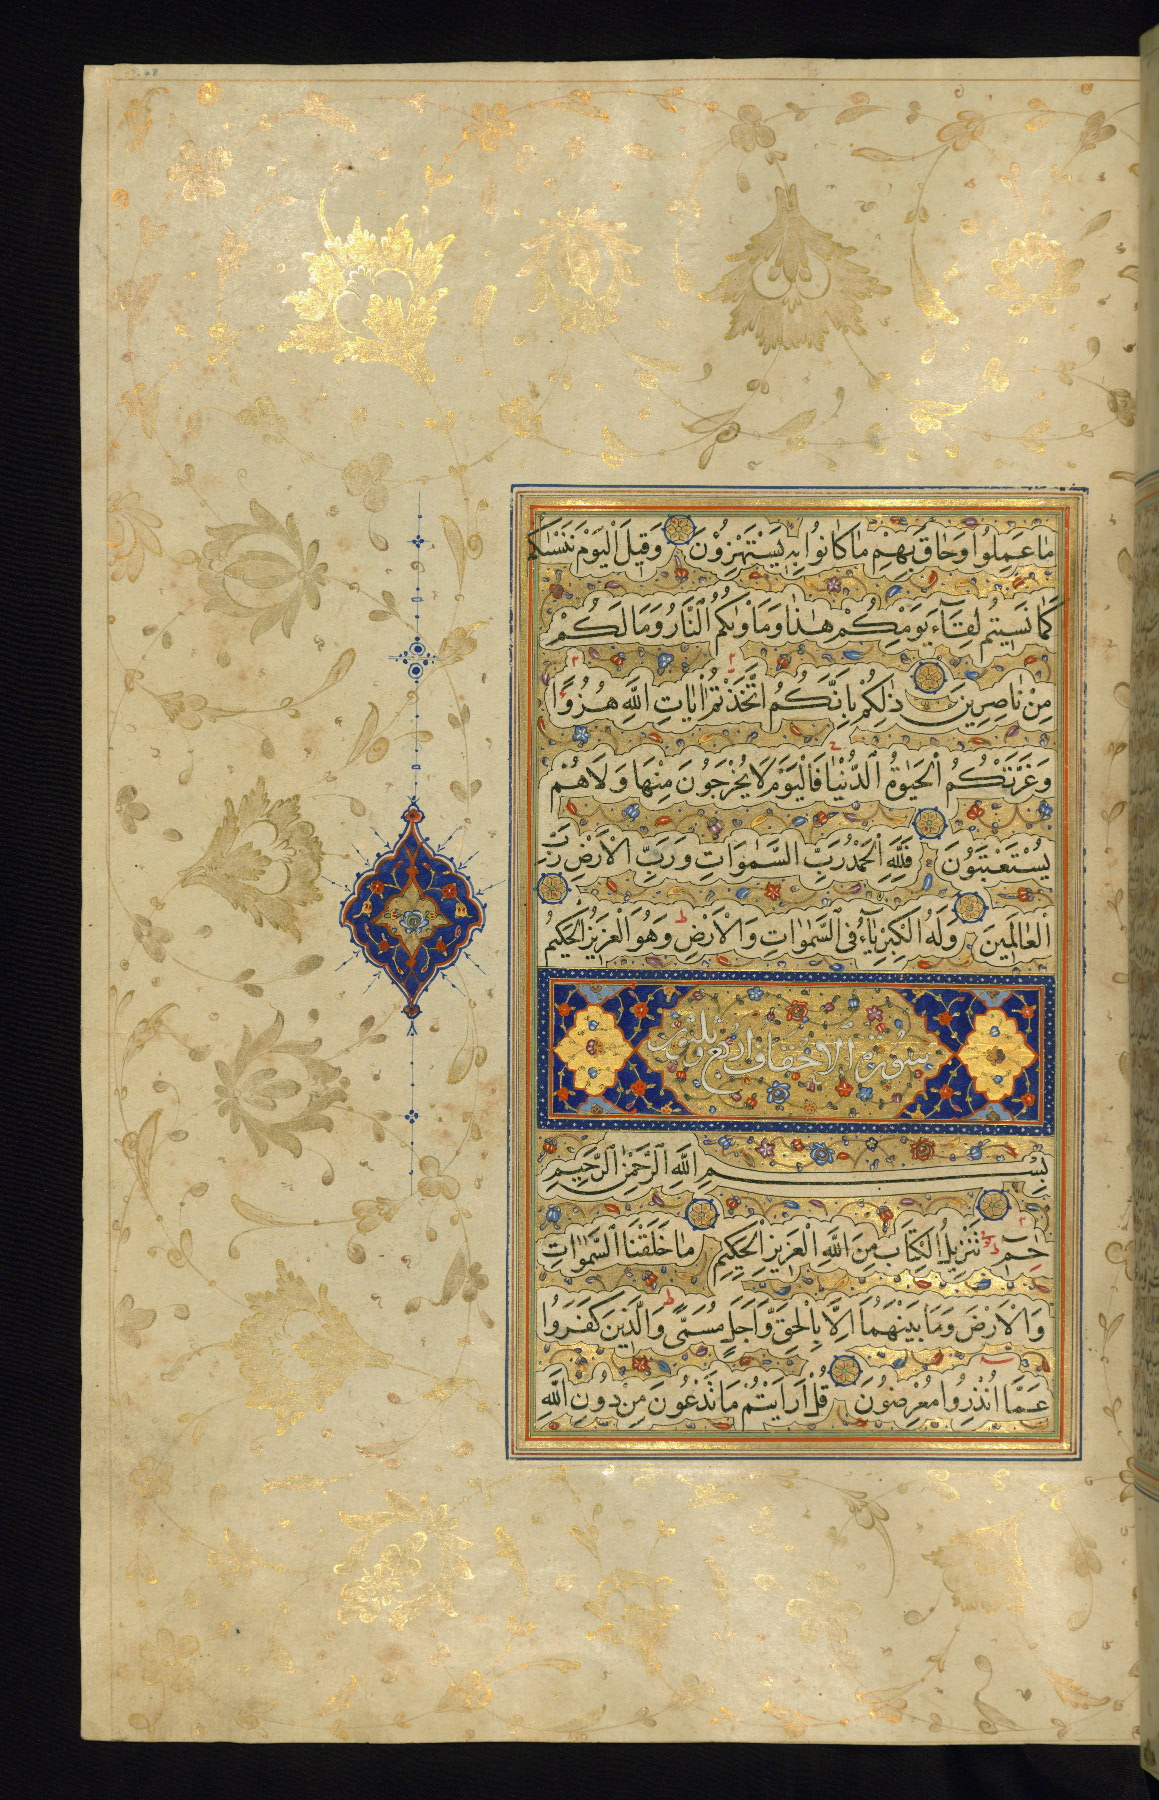 مَا عَمِلُوا وَحَاقَ بِهِمْ مَا كَانُوا بِهِ يَسْتَهْزِؤُنَ وَقِيلَ الْيَوْمَ نَنْسٰىكُمْ
كَمَا نَسِيتُمْ لِقَآءَ يَوْمِكُمْ هٰذَا وَمَأْوٰىكُمُ النَّارُ وَمَا لَكُمْ
مِنْ نَاصِرِينَ ذٰلِكُمْ بِاَنَّكُمُ اتَّخَذْتُمْ اٰيَاتِ اللّٰهِ هُزُوًا
وَغَرَّتْكُمُ الْحَيٰوةُ الدُّنْيَا فَالْيَوْمَ لَا يُخْرَجُونَ مِنْهَا وَلَا هُمْ
يُسْتَعْتَبُونَ فَلِلّٰهِ الْحَمْدُ رَبِّ السَّمٰوَاتِ وَرَبِّ الْاَرْضِ رَبِّ
الْعَالَمِينَ وَلَهُ الْكِبْرِيَآءُ فِى السَّمٰوَاتِ وَالْاَرْضِ وَهُوَ الْعَزِيزُ الْحَكِيمُ
سورة الاحقاف اربع وثلثون
بِسْمِ اللّٰهِ الرَّحْمٰنِ الرَّحِيمِ
حٰمٓ تَنْزِيلُ الْكِتَابِ مِنَ اللّٰهِ الْعَزِيزِ الْحَكِيمِ مَا خَلَقْنَا السَّمٰوَاتِ
وَالْاَرْضَ وَمَا بَيْنَهُمَا اِلَّا بِالْحَقِّ وَاَجَلٍ مُسَمًّى وَالَّذِينَ كَفَرُوا
عَمَّا اُنْذِرُوا مُعْرِضُونَ قُلْ اَرَاَيْتُمْ مَا تَدْعُونَ مِنْ دُونِ اللّٰهِ